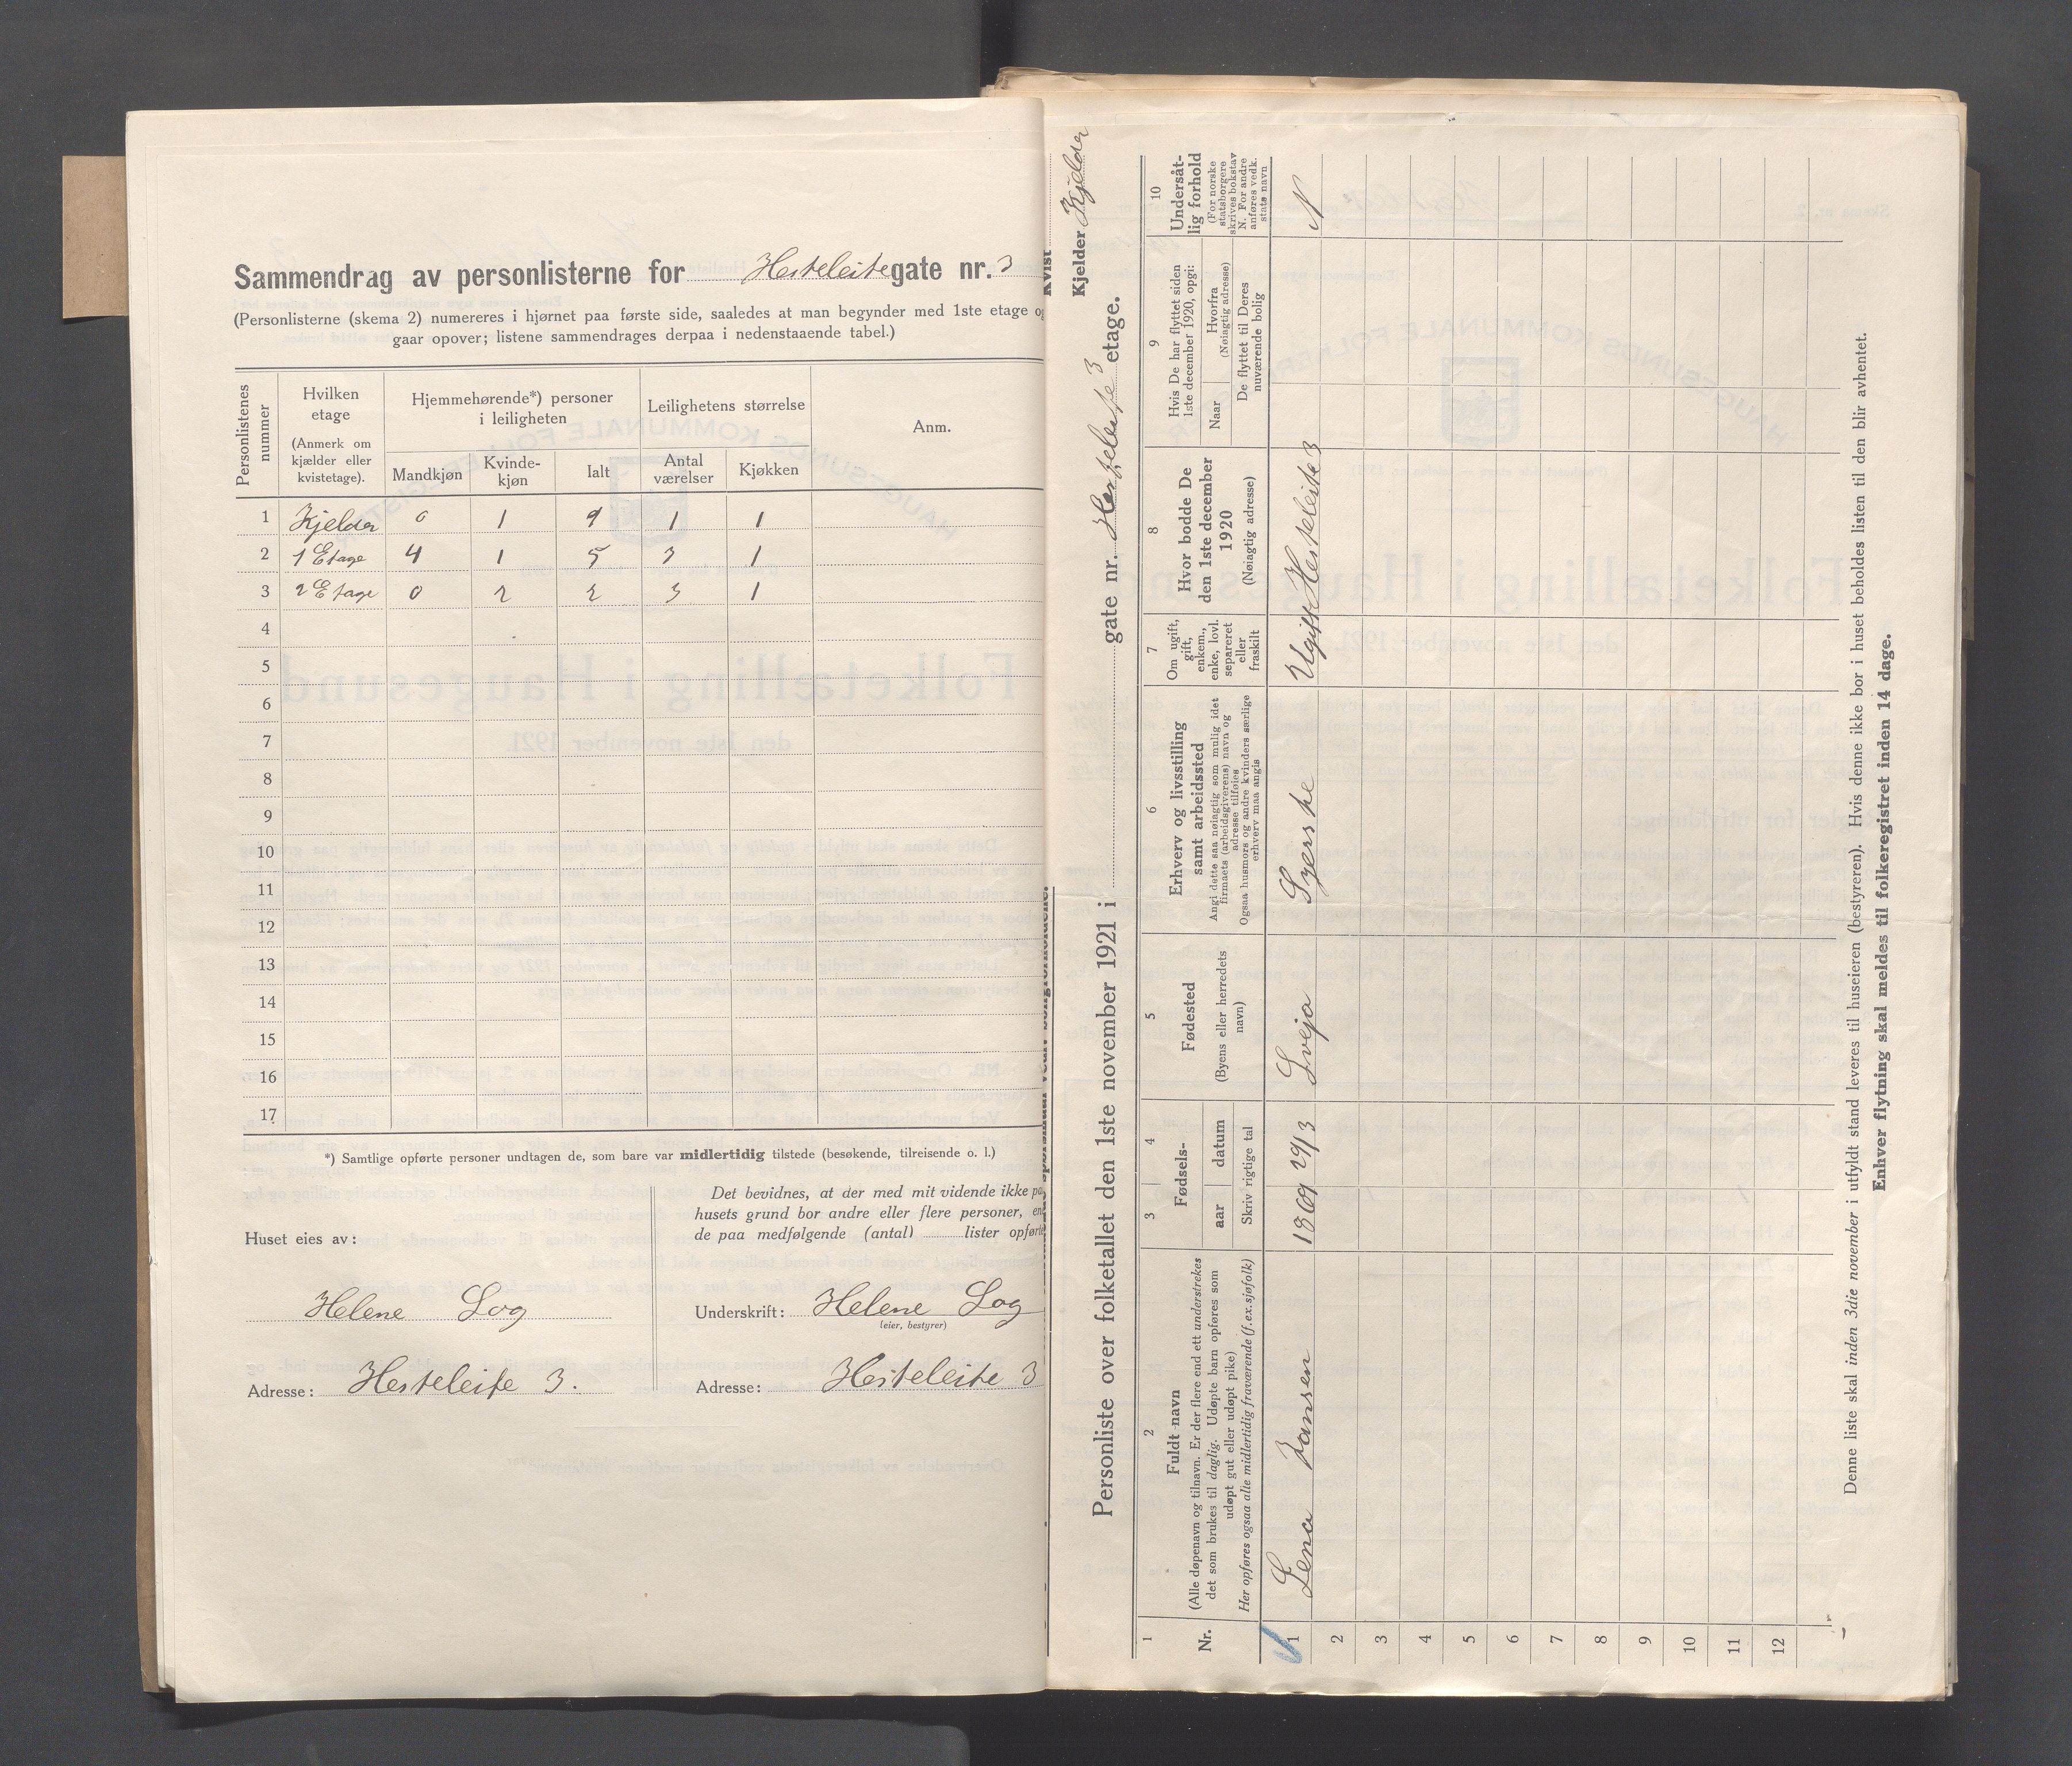 Sammendrag av personlisterne for Hesteleite gate nr. 3
(Personlisterne (skema 2) numereres i hjørnet paa første side, saaledes at man begynder med 1ste etage og
gaar opover; listene sammendrages derpaa i nedenstaaende tabel.)
Personlistenes nummer
Hvilken etage
(Anmerk om kjælder eller kvistetage).
Hjemmehørende*) personer i leiligheten
Mandkjøn
Kvinde-kjøn
Ialt
Leilighetens størrelse
Antal værelser
Kjøkken
Anm.
1 Kjelder 0 1 1 1
2 1 Etage 4 1 5 3 1
3 2 Etage 0 2 2 3 1
4
5
6
7
8
9
10
11
12
13
14
15
16
17
*) Samtlige opførte personer undtagen de, som bare var midlertidig tilstede (besøkende, tilreisende o. l.)
Huset eies av:
Helene Log
Adresse: Hesteleite 3.
Det bevidnes, at der med mit vidende ikke pa
husets grund bor andre eller flere personer, en
de paa medfølgende (antal) lister opførte
Underskrift: Helene Log
(eier, bestyrer)
Adresse: Hesteleite 3
Kvist
Kjelder Kjelder
Personliste over folketallet den 1ste november 1921 i gate nr. Hesteleite 3 etage.
1
Nr.
2
Fuldt navn
(Alle døpenavn og tilnavn. Er der flere end ett understrekes
det som brukes til daglig. Udøpte barn opføres som
udøpt gut eller udøpt pike)
Her opføres ogsaa alle midlertidig fraværende (f.ex. sjøfolk)
3 4
Fødsels-
aar datum
Skriv rigtige tal
5
Fødested
(Byens eller herredets navn)
6
Erhverv og livsstilling
samt arbeidssted
Angi dette saa nøiagtig som mulig idet
firmaets (arbeidsgiverens) navn og
adresse tilføies
Ogsaa husmors og andre kvinders særlige
erhverv maa angis
7
Om ugift,
gift,
enkem.,
enke, lovl.
separeret
eller
fraskilt
8
Hvor bodde De
den 1ste december
1920
(Nøiagtig adresse)
9
Hvis De har flyttet siden
1ste december 1920, opgi:
Naar
Hvorfra
(Nøiagtig adresse)
De flyttet til Deres
nuværende bolig
10
Undersåt-
lig forhold
(For norske
statsborgere
skrives bokstav
N. For andre
anføres vedk.
stats navn
1 Lena Hansen 1869 29/3 Sveio Syerske Ugift Hesteleite 3 N
2
3
4
5
6
7
8
9
10
11
12
Denne liste skal inden 3die november i utfyldt stand leveres til huseieren (bestyreren). Hvis denne ikke bor i huset beholdes listen til den blir avhentet.
Enhver flytning skal meldes til folkeregistret inden 14 dage.